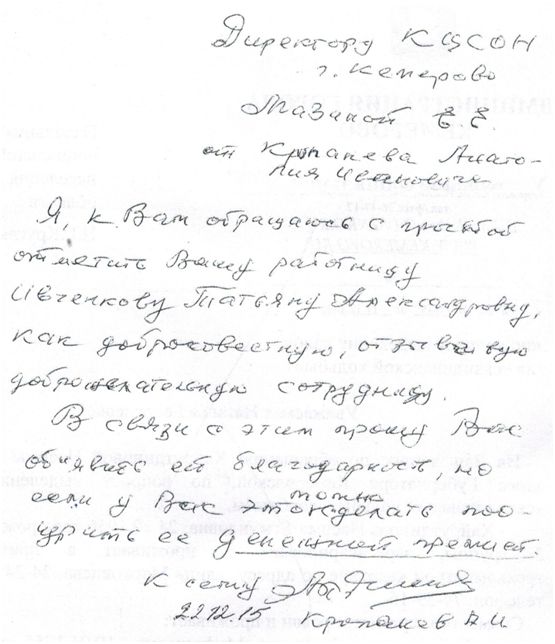 Директору КЦСОН
г. Кемерово
Мазиной Е.Е.
от Крюпанева Анато-
лия Ивановича
Я, к Вам обращаюсь с просьбой
отметить Вашу работницу
Ивченкову Татьяну Александровну,
как добросовестную, отзывчивую
доброжелательную сотрудницу.
В связи с этим прошу Вас
объявить ей благодарность но
если у Вас можно это сделать поо
щрить её денежной премией.
К сему
22 12 15